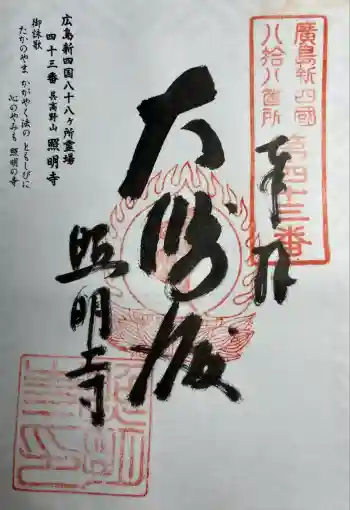 廣島新四國
八拾八箇所
第四十三番
奉拝
大勝殿
照明寺
広島新四国八十八ヶ所霊場
四十三番 呉高野山 照明寺
御詠歌
たかのやま かがやく法の ともしびに
心のやみも 照明の寺